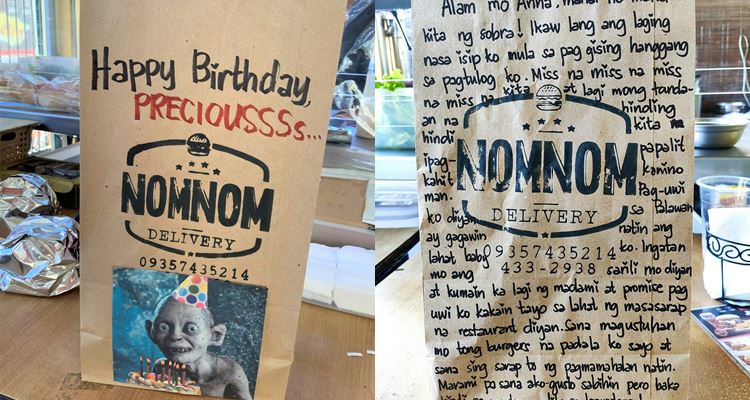 Happy Birthday,
PRECIOUSSSs...
NOMNOM
DELIVERY
09357435214
Alam mo Anna, mahal na mahal
kita ng sobra! Ikaw lang ang laging
nasa isip ko mula sa pag gising hanggang
sa pagtulog ko. Miss na miss na miss
na miss na kita at lagi mong tanda-
an na hinding
hindi kita
ipag- papalit
kahit kanino
man. Pag-uwi
ko diyan sa Palawan
ay gagawin natin ang
lahat baby ko. Ingatan
mo ang sarili mo diyan
NOMNOM
DELIVERY
09357435214
433-2938
at kumain ka lagi ng madami at promise pag
uwi ko kakain tayo sa lahat ng masasarap
na restaurant diyan. Sana magustuhan
mo tong burgers na padala ko sayo at
sana sing sarap to ng pagmamahalan natin.
Marami pa sana ako gusto sabihin pero baka